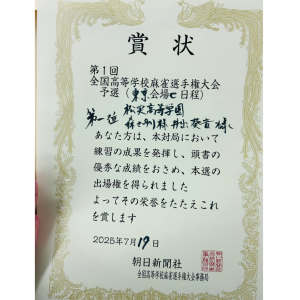 賞状
第1回
全国高等学校麻雀選手権大会
予選（東京会場C日程）
松実高等学園
第一位
様
あなた方は、本対局において
練習の成果を発揮し、頭書の
優秀な成績をおさめ、本選の
出場権を得られました
よってその栄誉をたたえこれ
を賞します
2025年7月19日
朝日新聞社
全国高等学校麻雀選手権大会事務局